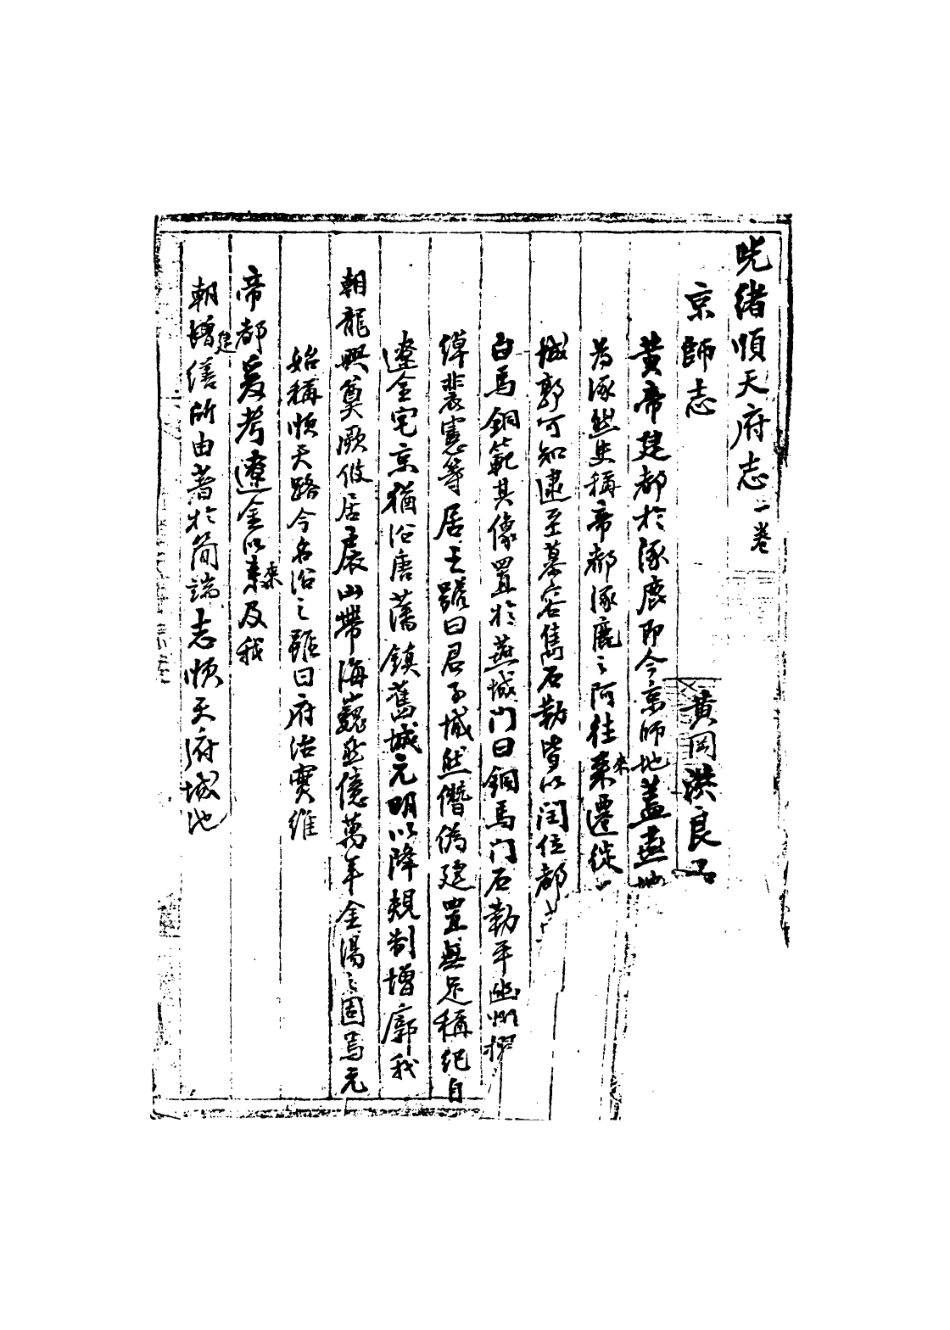 光緒順天府志一卷
京師志 黃岡洪良品
黃帝建都於涿鹿即今京師地蓋燕地
為涿然史稱帝都涿鹿之阿往来來遷徙
城郭可知逮至慕容雋石勒皆以閏位都
白馬銅範其像置於燕城門曰銅馬門石勒平幽州擢
倬裴憲等居之雖曰君子城然僭偽建置無足稱紀自
遼金宅京猶沿唐藩鎮舊城元明以降規制增廓我
朝龍興奠厥攸居扆山帶海巍丞億萬年金湯之固焉元
始稱順天路今名沿之雖曰府治實維
帝都爰考遼金以来來及我
朝增建繕所由著於簡端志順天府城池